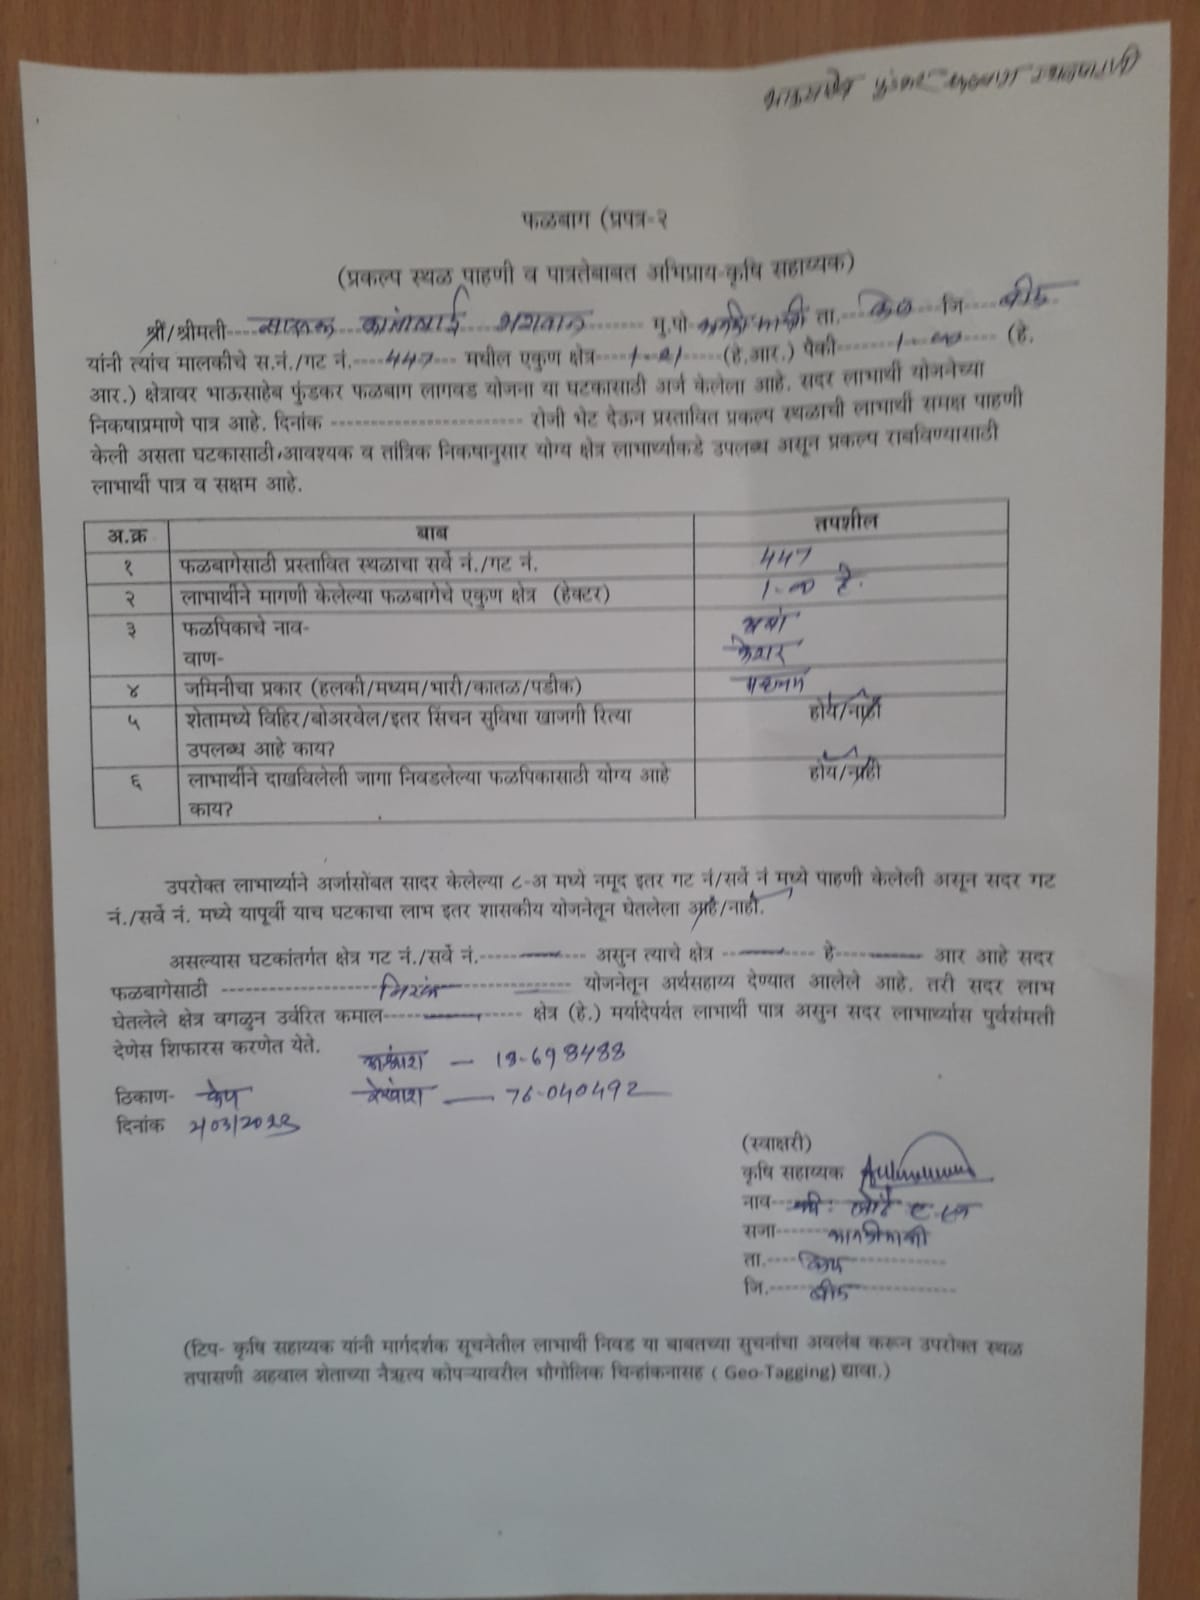 फळबाग (प्रपत्र-२
(प्रकल्प स्थळ पाहणी व पात्रतेबाबत अभिप्राय-कृषि सहाय्यक)
श्री/श्रीमती---- ------ मु.पो ता. केज जि बीड
यांनी त्यांच मालकीचे स.नं./गट नं.----447--- मधील एकुण क्षेत्र----1-21----(हे.आर.) पैकी------1-00-----(हे.
आर.) क्षेत्रावर भाऊसाहेब फुंडकर फळबाग लागवड योजना या घटकासाठी अर्ज केलेला आहे. सदर लाभार्थी योजनेच्या
निकषाप्रमाणे पात्र आहे. दिनांक ------------------------- रोजी भेट देऊन प्रस्तावित प्रकल्प स्थळाची लाभार्थी समक्ष पाहणी
केली असता घटकासाठी आवश्यक व तांत्रिक निकषानुसार योग्य क्षेत्र लाभार्थ्याकडे उपलब्ध असून प्रकल्प राबविण्यासाठी
लाभार्थी पात्र व सक्षम आहे.
अ.क्र बाब तपशील
१ फळबागेसाठी प्रस्तावित स्थळाचा सर्वे नं./गट नं. 447
२ लाभार्थीने मागणी केलेल्या फळबागेचे एकुण क्षेत्र (हेक्टर) 1-00 हे.
३ फळपिकाचे नाव- आंबा
वाण- केशर
४ जमिनीचा प्रकार (हलकी/मध्यम/भारी/कातळ/पडीक) मध्यम
५ शेतामध्ये विहिर/बोअरवेल/इतर सिंचन सुविधा खाजगी रित्या होय/नाही
उपलब्ध आहे काय?
६ लाभार्थीने दाखविलेली जागा निवडलेल्या फळपिकासाठी योग्य आहे होय/नाही
काय?
उपरोक्त लाभार्थ्याने अर्जासोबत सादर केलेल्या ८-अ मध्ये नमूद इतर गट नं/सर्वे नं मध्ये पाहणी केलेली असून सदर गट
नं./सर्वे नं. मध्ये यापूर्वी याच घटकाचा लाभ इतर शासकीय योजनेतून घेतलेला आहे/नाही.
असल्यास घटकांतर्गत क्षेत्र गट नं./सर्वे नं.-------------- असुन त्याचे क्षेत्र ------------ हे------------ आर आहे सदर
फळबागेसाठी -------------------- निरंक -------------------- योजनेतून अर्थसहाय्य देण्यात आलेले आहे. तरी सदर लाभ
घेतलेले क्षेत्र वगळुन उर्वरित कमाल------------------ क्षेत्र (हे.) मर्यादेपर्यत लाभार्थी पात्र असुन सदर लाभार्थ्यास पुर्वसंमती
देणेस शिफारस करणेत येते.
अक्षांश — 18-698488
ठिकाण- केज रेखांश — 76-040492
दिनांक 2/03/2023
(स्वाक्षरी)
कृषि सहाय्यक
नाव--
सजा-------
ता.---- केज --------------
जि.------ बीड --------------
(टिप- कृषि सहाय्यक यांनी मार्गदर्शक सूचनेतील लाभार्थी निवड या बाबतच्या सुचनांचा अवलंब करून उपरोक्त स्थळ
तपासणी अहवाल शेताच्या नैऋत्य कोपऱ्यावरील भौगोलिक चिन्हांकनासह ( Geo-Tagging) द्यावा.)